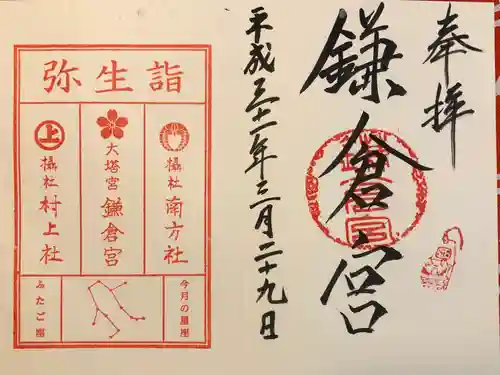 奉拝
鎌倉宮
鎌倉宮
平成三十一年三月二十九日
弥生詣
攝社
南方社
大塔宮
鎌倉宮
上
攝社
村上社
今月の星座
ふたご座